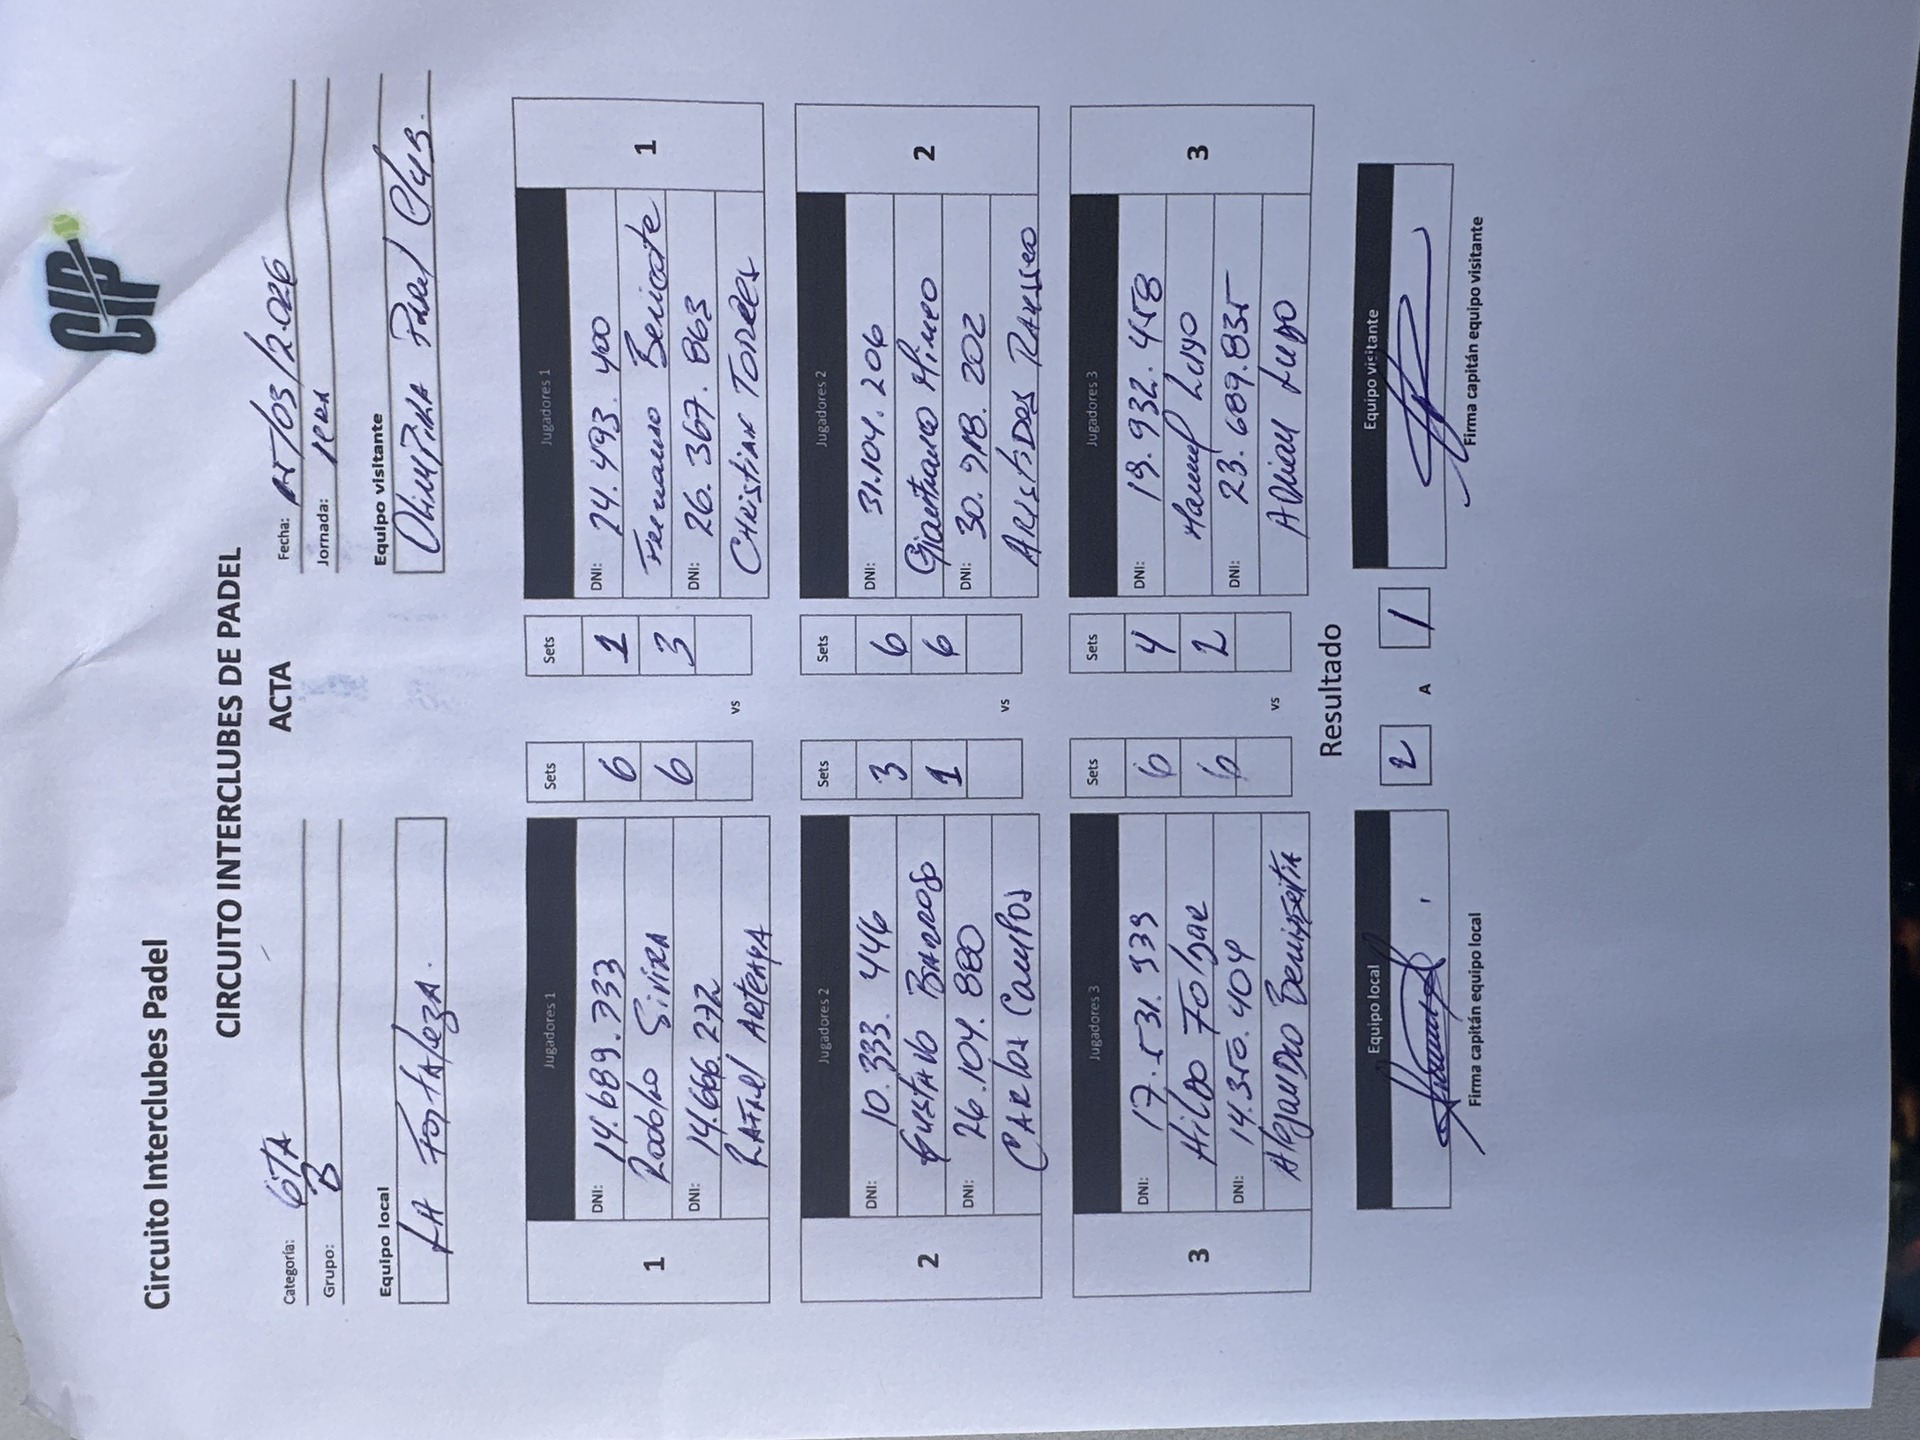 Circuito Interclubes Padel
CIP
CIRCUITO INTERCLUBES DE PADEL
ACTA
Categoría: 6TA
Fecha: /03/2026
Grupo: B
Jornada: 1ERA
Equipo local
Equipo visitante
LA FortAlezA.
OlimPikA Padel Club.
1
Jugadores 1
Sets
Sets
Jugadores 1
1
DNI: 14.689.733
6
1
DNI: 24.493.400
Rodolfo Sivira
6
3
Fernando
DNI: 14.666.272
DNI: 26.367.863
RAFAel ArteAgA
vs
CHristian Torres
2
Jugadores 2
Sets
Sets
Jugadores 2
2
DNI: 10.333.446
3
6
DNI: 31.104.206
GustaVo Barros
1
6
Gianfranco Mineo
DNI: 26.104.880
DNI: 30.918.202
CArlos CamPos
vs
ArisTiDes
3
Jugadores 3
Sets
Sets
Jugadores 3
3
DNI: 17.531.939
6
4
DNI: 19.932.458
HilDo Folgar
6
2
Manuel Lugo
DNI: 14.350.404
DNI: 23.689.835
AlejanDro
vs
ADrian Lugo
Resultado
Equipo local
2 A 1
Equipo visitante
Firma capitán equipo local
Firma capitán equipo visitante